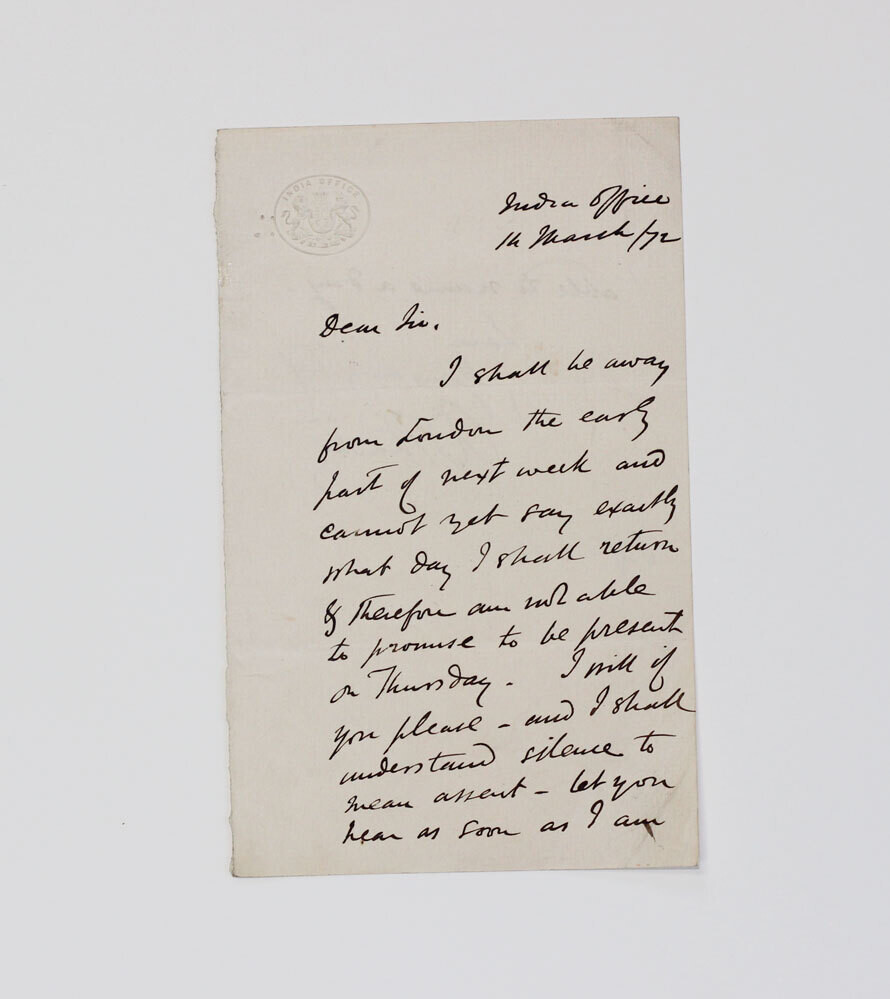 INDIA OFFICE
India Office
14 March /72
Dear Sir,
I shall be away
from London the early
part of next week and
cannot yet say exactly
what day I shall return
& therefore am not able
to promise to be present
on Thursday. I will if
you please – and I shall
understand silence to
mean assent – let you
hear as soon as I am
able to name a day